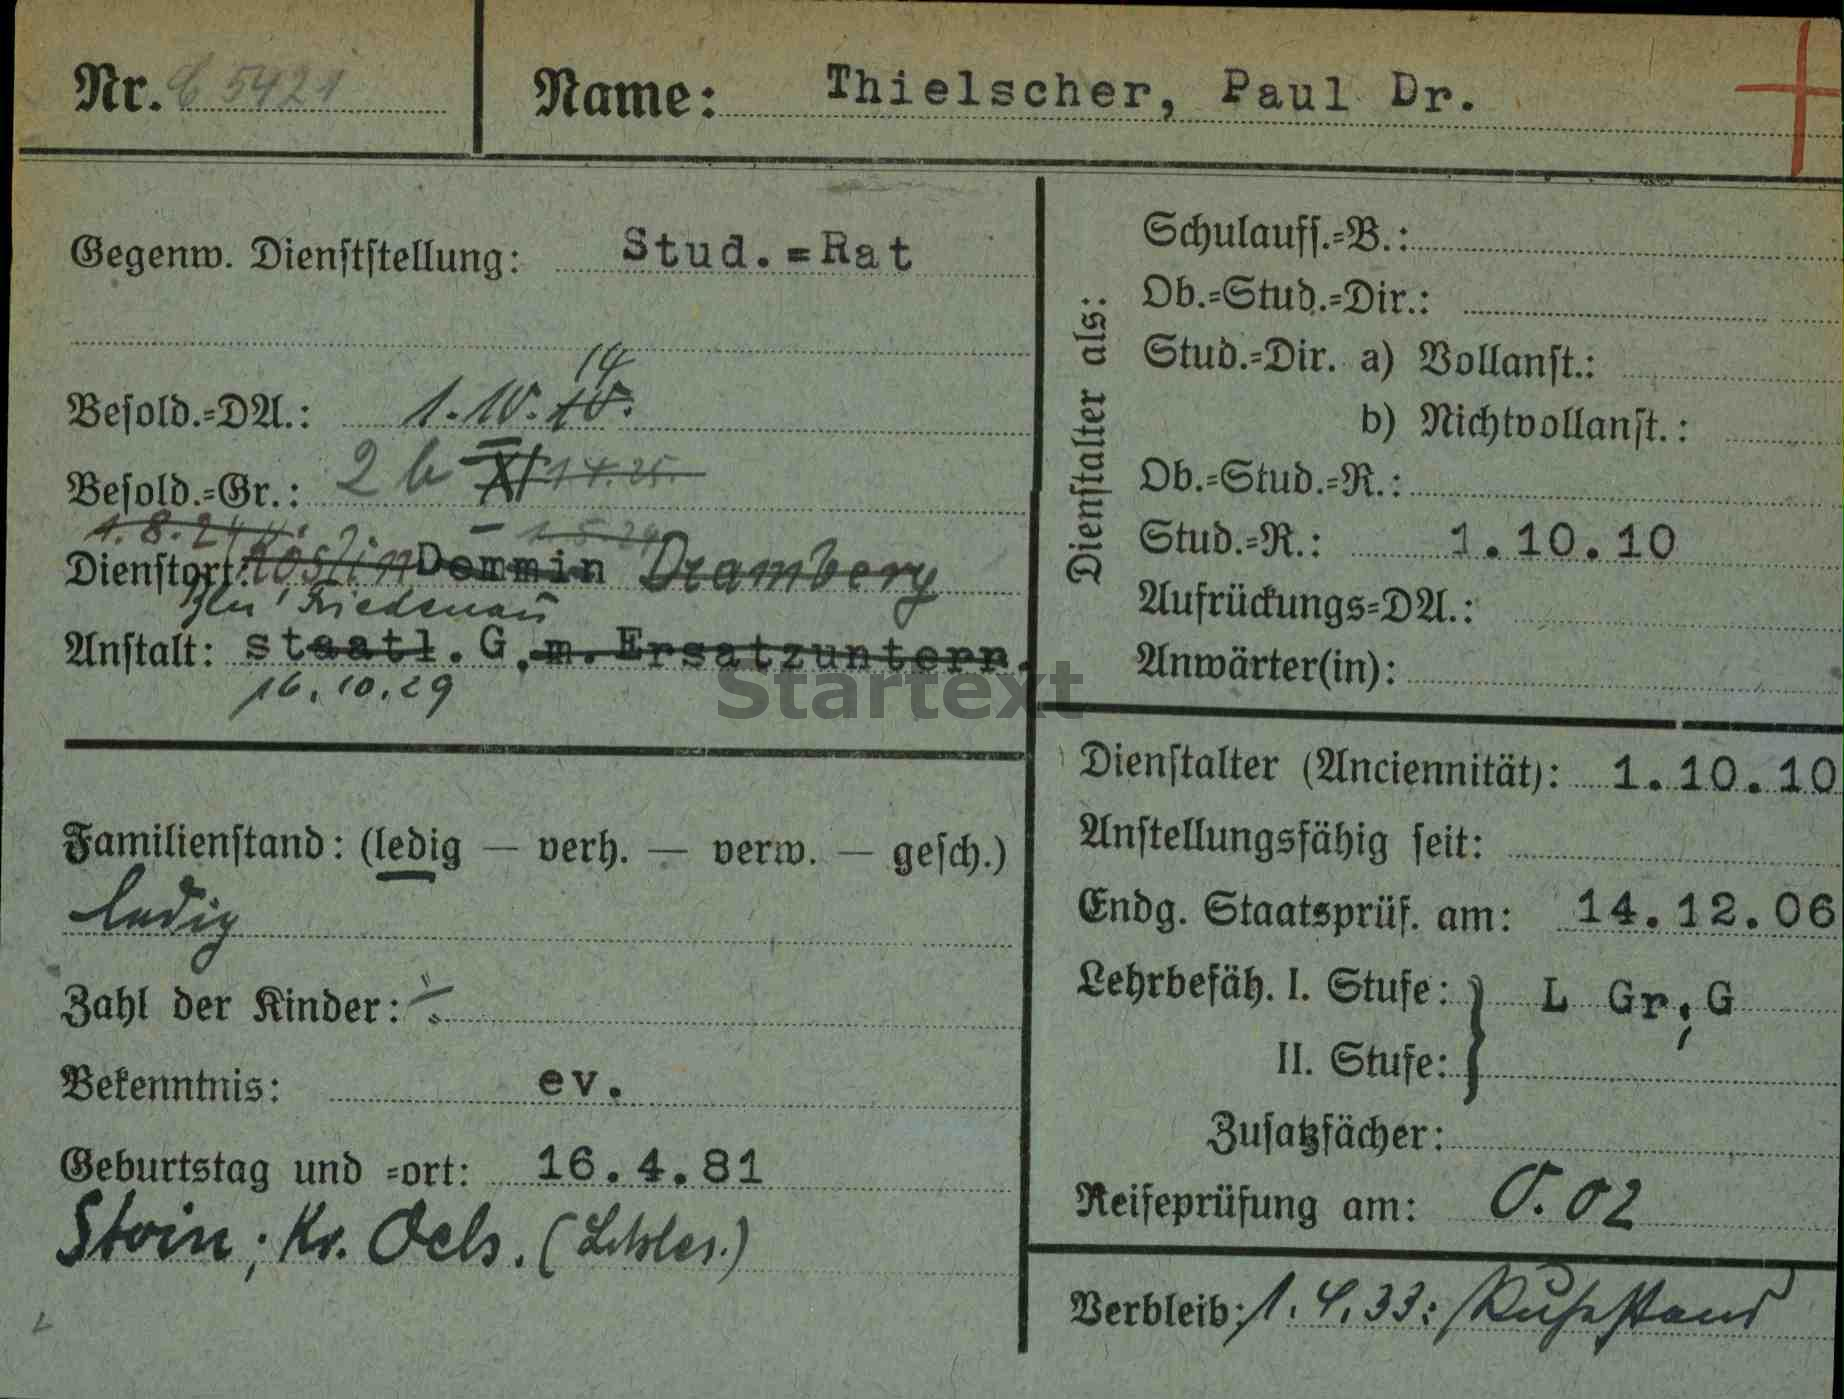 Nr. 5421
Name: Thielscher, Paul Dr.
Gegenw. Dienststellung: Stud.=Rat
14
Besold.=DA.: 1.10.10.
Besold.=Gr.: 2 b XI 1.4.25.
1.8.24 1.5.24
Dienstort: Köslin Demmin Dramberg
Bln Friedenau
Anstalt: staatl. G. m. Ersatzunterr.
16.10.29
Familienstand: (ledig — verh. — verw. — gesch.)
ledig
Zahl der Kinder: ./.
Bekenntnis: ev.
Geburtstag und =ort: 16.4.81
Stein; Kr. Oels.
Dienstalter als:
Schulaufs.=B.:
Ob.=Stud.=Dir.:
Stud.=Dir. a) Vollanst.:
b) Nichtvollanst.:
Ob.=Stud.=R.:
Stud.=R.: 1.10.10
Aufrückungs=DA.:
Anwärter(in):
Dienstalter (Anciennität): 1.10.10
Anstellungsfähig seit:
Endg. Staatsprüf. am: 14.12.06
Lehrbefäh. I. Stufe: L Gr; G
II. Stufe:
Zusatzfächer:
Reifeprüfung am: O. 02
Verbleib: 1.4.33: Ruhestand
Startext